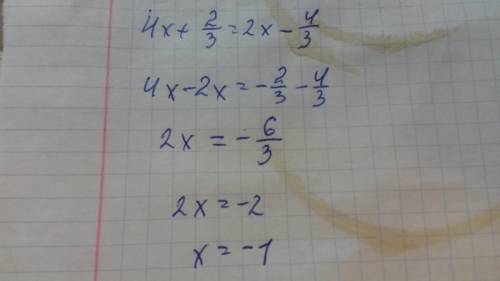 4x + 2/3 = 2x - 4/3
4x - 2x = - 2/3 - 4/3
2x = - 6/3
2x = -2
x = -1